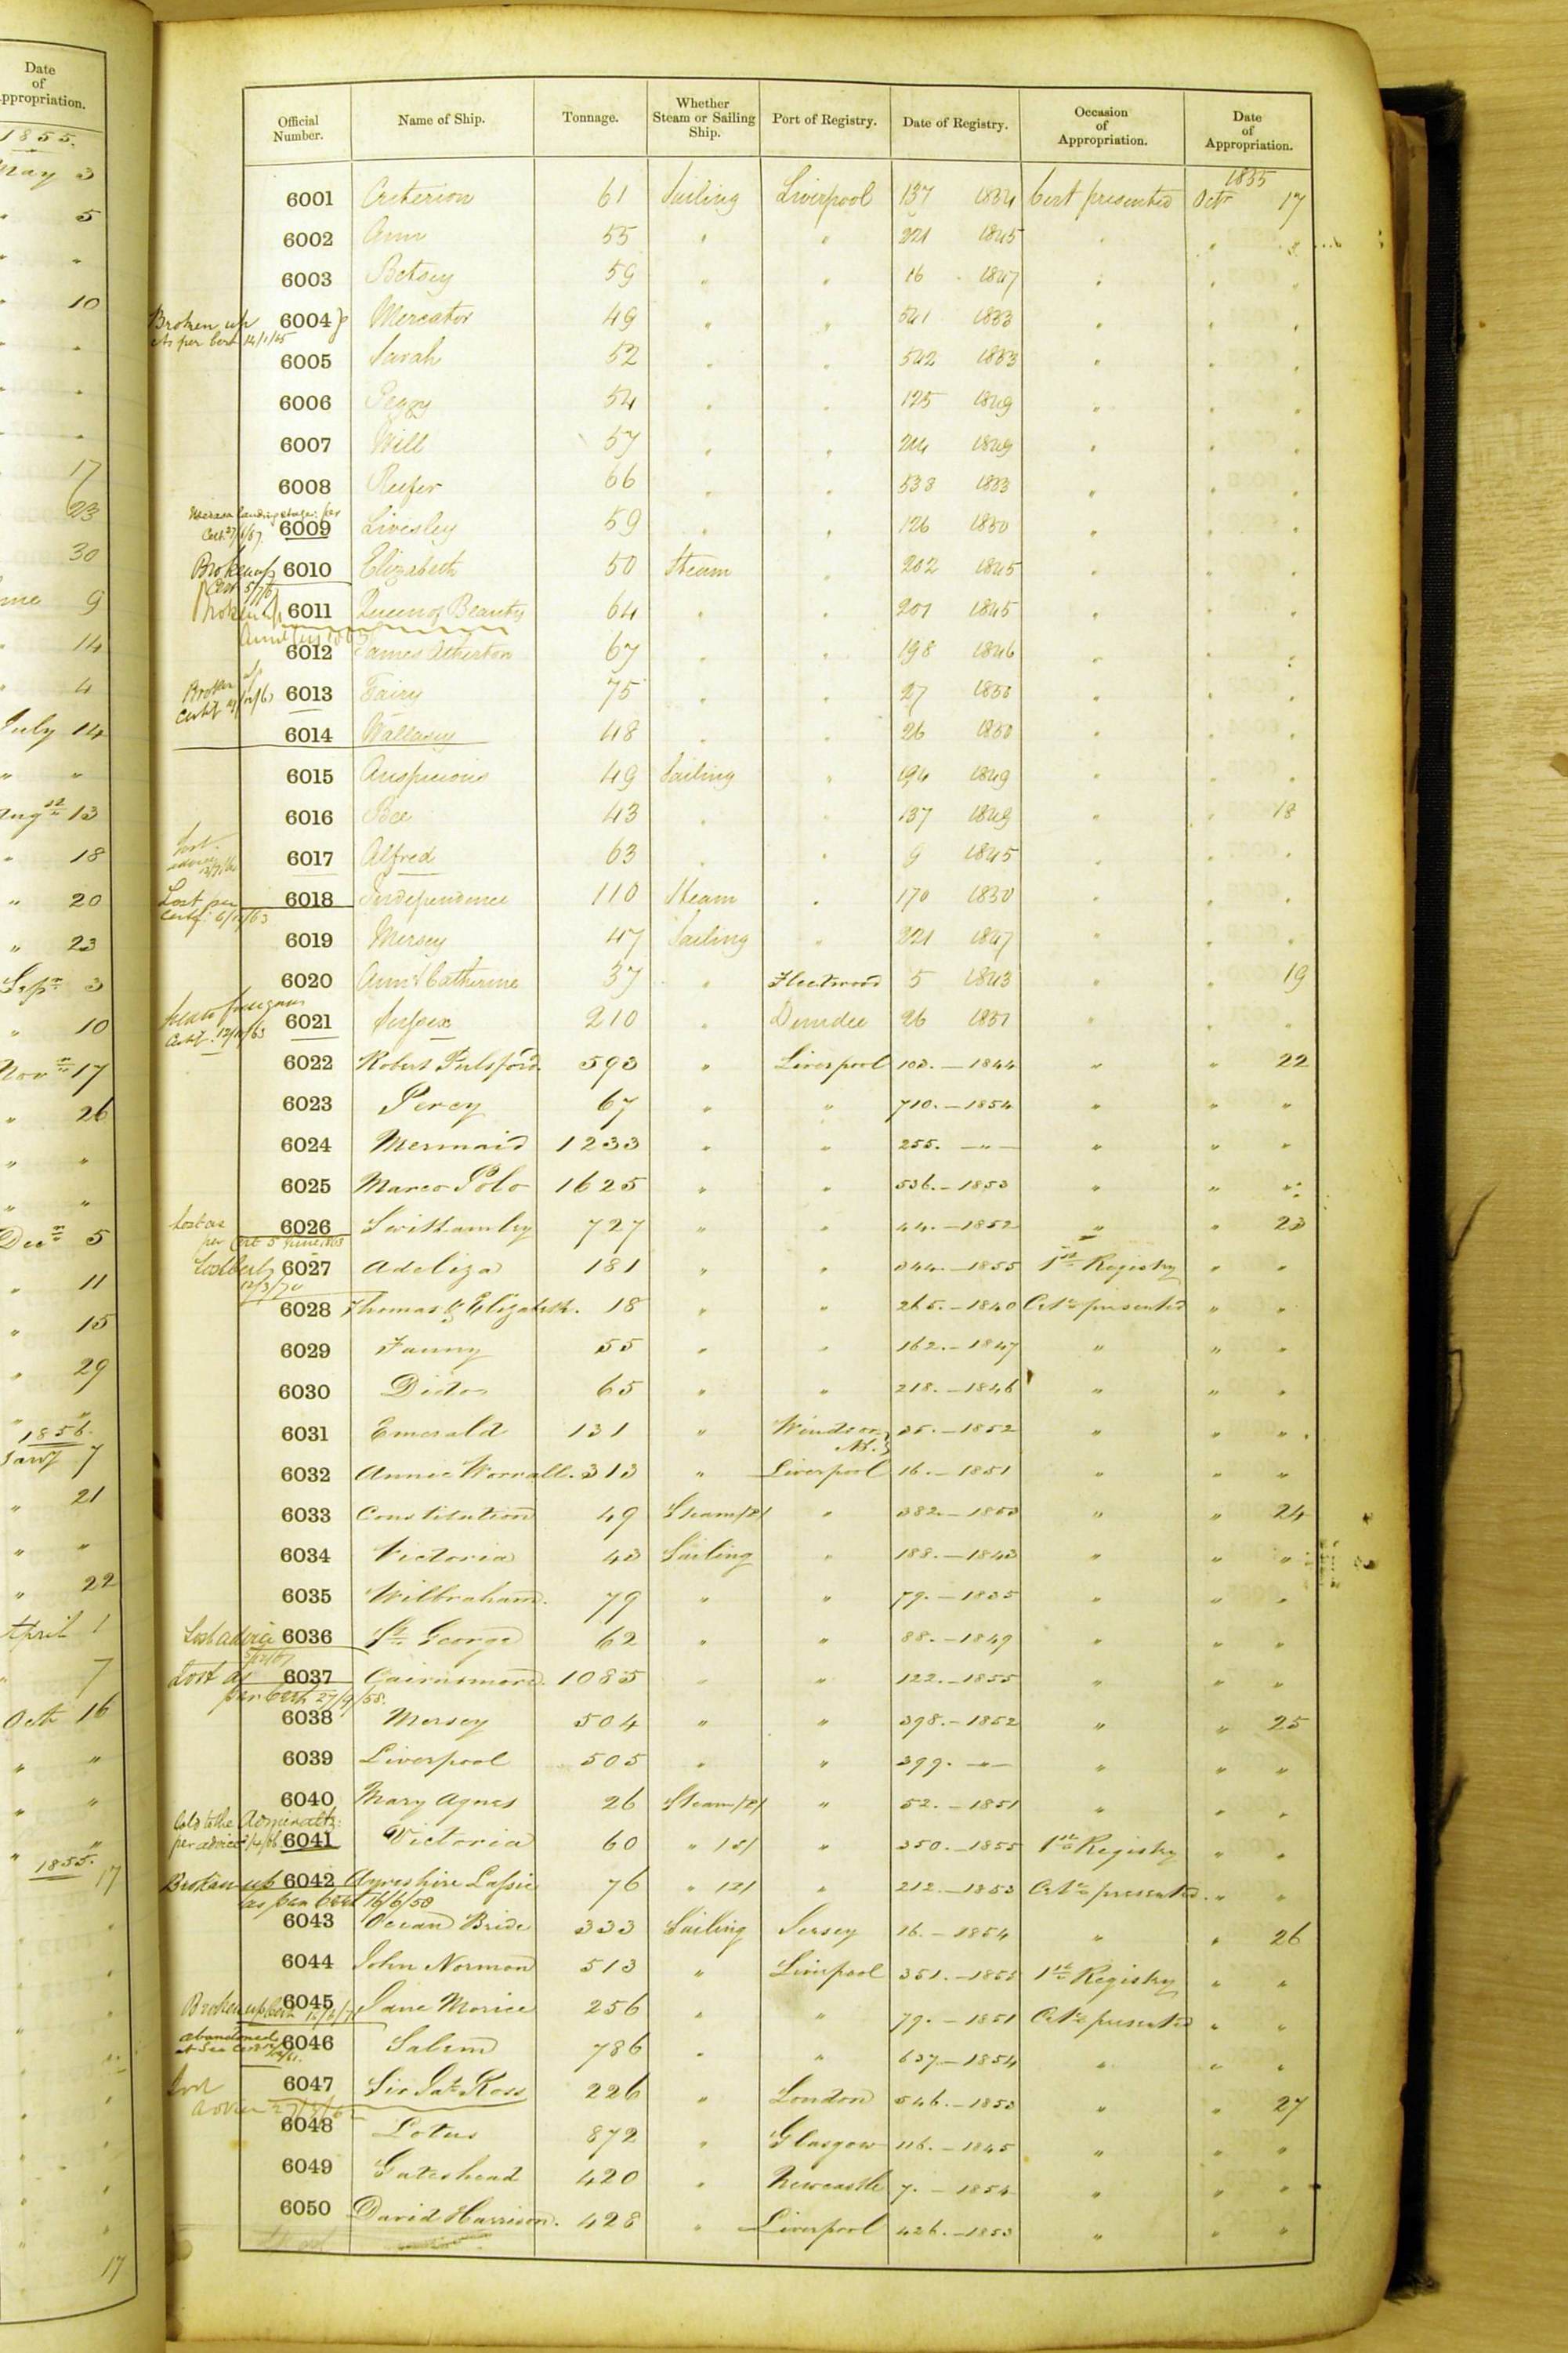 Date
of
Appropriation.
1855.
May 3
" 5
" "
" 10
" "
" "
" "
17
23
30
9
14
4
July 14
" "
Augst 13
" 18
" 20
" 23
Sepr 3
" 10
Novr 17
" 26
" "
" "
Decr 5
" 11
" 15
" 29
" "
1856.
Jany 7
" 21
" "
" 22
April 1
" 7
Octr 16
" "
" "
" "
1855. 17
17
Official Number. Name of Ship. Tonnage. Whether Steam or Sailing Ship. Port of Registry. Date of Registry. Occasion of Appropriation. Date of Appropriation.
1855
6001 Criterion 61 Sailing Liverpool 137 1834 Cert presented Octr 17
6002 Ann 55 " " 221 1845 " " "
6003 Betsey 59 " " 16 1847 " " "
Broken up 6004 Mercator 49 " " 541 1833 " " "
as per Cert 14/1/65
6005 Sarah 52 " " 542 1833 " " "
6006 Peggy 54 " " 125 1849 " " "
6007 Will 57 " " 244 1849 " " "
6008 Reefer 66 " " 538 1833 " " "
landing stage: per
6009 Livesley 59 " " 126 1850 " " "
Broken up 6010 Elizabeth 50 Steam " 202 1845 " " "
Cert
Broken up 6011 Queen of Beauty 64 " " 201 1845 " " "
6012 James Atherton 67 " " 198 1846 " " "
Broken up 6013 Fairy 75 " " 27 1853 " " "
Certif
6014 Wallasey 48 " " 26 1850 " " "
6015 Auspicious 49 Sailing " 194 1849 " " "
6016 Bee 43 " " 137 1849 " " 18
Lost 6017 Alfred 63 " " 9 1845 " " "
advice
Lost per 6018 Independence 110 Steam " 170 1850 " " "
Certif: 6/12/63
6019 Mersey 47 Sailing " 221 1847 " " "
6020 Ann & Catherine 37 " Fleetwood 5 1843 " " 19
Sold to foreigners 6021 Sussex 210 " Dundee 26 1851 " " "
Certif. 12/12/63
6022 Robert Pulsford 593 " Liverpool 103. - 1844 " " 22
6023 Percy 67 " " 710. - 1854 " " "
6024 Mermaid 1233 " " 255. - " - " " "
6025 Marco Polo 1625 " " 536. - 1853 " " "
Lost as 6026 Swithamley 727 " " 44. - 1852 " " 23
per Cert 5 June
Lost Cert 6027 Adeliza 181 " " 344. - 1855 1st Registry " "
12/3/70
6028 Thomas & Elizabeth. 18 " " 265. - 1840 Certe presented " "
6029 Fanny 55 " " 162. - 1847 " " "
6030 Dido 65 " " 218. - 1846 " " "
6031 Emerald 131 " Windsor N.S. 35. - 1852 " " "
6032 Annie Worrall. 313 " Liverpool 16. - 1851 " " "
6033 Constitution 49 Steam /2/ " 382. - 1853 " " 24
6034 Victoria 43 Sailing " 188. - 1843 " " "
6035 Wilbraham. 79 " " 79. - 1835 " " "
Lost advice 6036 St. George 62 " " 88. - 1849 " " "
Lost as 6037 Cairnsmore. 1085 " " 122. - 1855 " " "
per Cert 27/9/58.
6038 Mersey 504 " " 398. - 1852 " " 25
6039 Liverpool 505 " " 399. - " - " " "
6040 Mary Agnes 26 Steam /2/ " 52. - 1851 " " "
Sold to the Admiralty:
per advice 6041 Victoria 60 " /3/ " 350. - 1855 1st Registry " "
Broken up 6042 Ayreshire Lassie 76 " /2/ " 212. - 1853 Certe presented. " "
as per Cert 16/6/58
6043 Ocean Bride 333 Sailing Jersey 16. - 1854 " " 26
6044 John Norman 513 " Liverpool 351. - 1855 1st Registry " "
Broken up Cert 6045 Jane Morice 256 " " 79. - 1851 Certe presented " "
abandoned 6046 Salem 786 " " 637. - 1854 " " "
at Sea Cert
Lost 6047 Sir Jas. Ross 226 " London 546. - 1853 " " 27
advice
6048 Lotus 872 " Glasgow 116. - 1845 " " "
6049 Gateshead 420 " Newcastle 7. - 1854 " " "
6050 David Harrison. 428 " Liverpool 426. - 1853 " " "